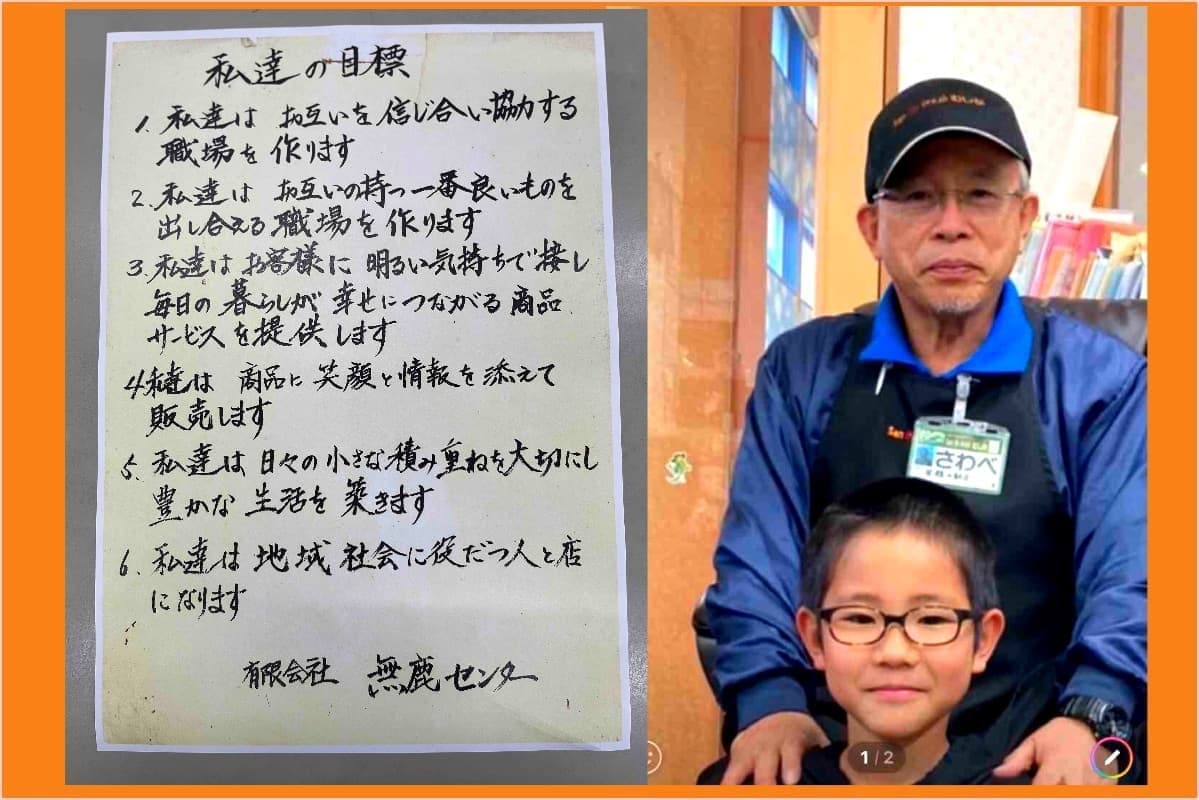 私達の目標
1. 私達は お互いを信じ合い協力する
職場を作ります
2. 私達は お互いの持つ一番良いものを
出し合える職場を作ります
3. 私達はお客様に 明るい気持ちで接し
毎日の暮らしが幸せにつながる商品
サービスを提供します
4. 私達は 商品に笑顔と情報を添えて
販売します
5. 私達は日々の小さな積み重ねを大切にし
豊かな生活を築きます
6. 私達は地域社会に役だつ人と店
になります
有限会社 無鹿センター
さわべ
1 / 2